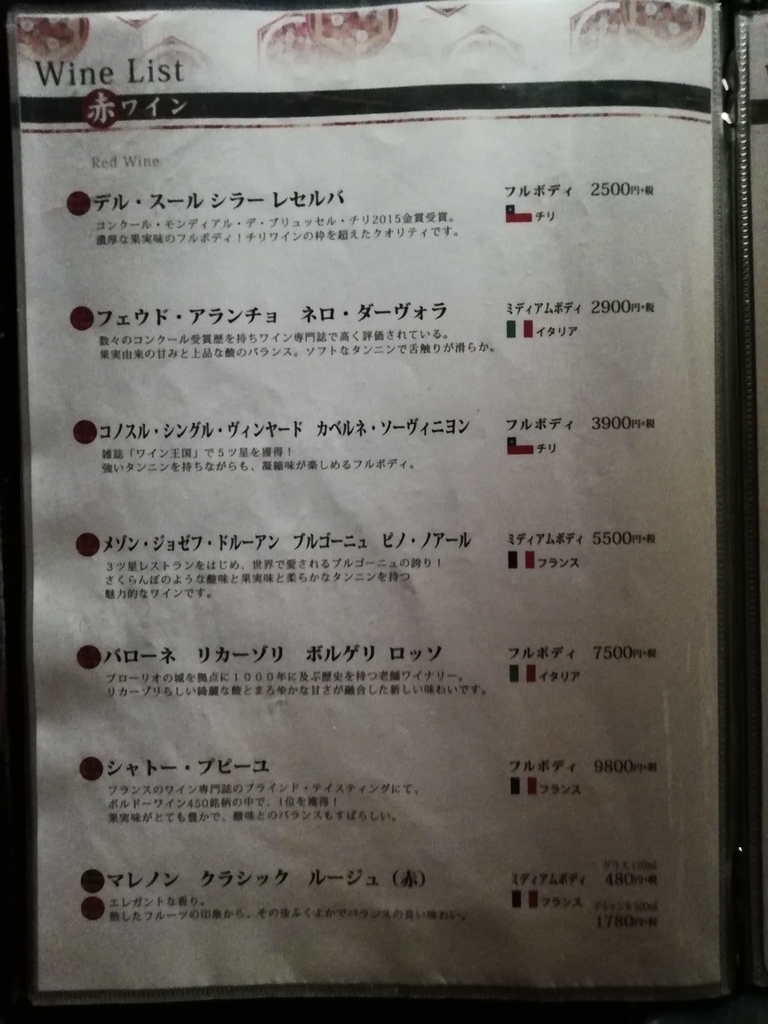 Wine List
赤ワイン
Red Wine
デル・スール シラー レセルバ フルボディ 2500円+税
コンクール・モンディアル・デ・ブリュッセル・チリ2015金賞受賞。 チリ
濃厚な果実味のフルボディ！チリワインの枠を超えたクオリティです。
フェウド・アランチョ ネロ・ダーヴォラ ミディアムボディ 2900円+税
数々のコンクール受賞歴を持ちワイン専門誌で高く評価されている。 イタリア
果実由来の甘みと上品な酸のバランス。ソフトなタンニンで舌触りが滑らか。
コノスル・シングル・ヴィンヤード カベルネ・ソーヴィニヨン フルボディ 3900円+税
雑誌「ワイン王国」で５ツ星を獲得！ チリ
強いタンニンを持ちながらも、凝縮味が楽しめるフルボディ。
メゾン・ジョゼフ・ドルーアン ブルゴーニュ ピノ・ノアール ミディアムボディ 5500円+税
３ツ星レストランをはじめ、世界で愛されるブルゴーニュの誇り！ フランス
さくらんぼのような酸味と果実味と柔らかなタンニンを持つ
魅力的なワインです。
バローネ リカーゾリ ボルゲリ ロッソ フルボディ 7500円+税
ブローリオの城を拠点に１０００年に及ぶ歴史を持つ老舗ワイナリー。 イタリア
リカーゾリらしい綺麗な酸とまろやかな甘さが融合した新しい味わいです。
シャトー・プピーユ フルボディ 9800円+税
フランスのワイン専門誌のブラインド・テイスティングにて、 フランス
ボルドーワイン450銘柄の中で、1位を獲得！
果実味がとても豊かで、酸味とのバランスもすばらしい。
グラス 120ml
マレノン クラシック ルージュ（赤） ミディアムボディ 480円+税
エレガントな香り。 フランス デキャンタ 500ml
熟したフルーツの印象から、その後ふくよかでバランスの良い味わい。 1780円+税